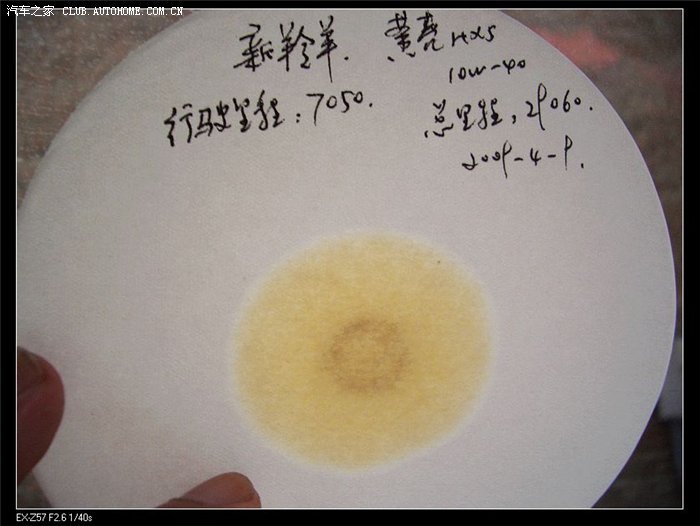 汽车之家 CLUB.AUTOHOME.COM.CN
新羚羊. 黄壳 HX5
10W-40
行驶里程:7050.
总里程:29060.
2009-4-9.
EX-Z57 F2.6 1/40s